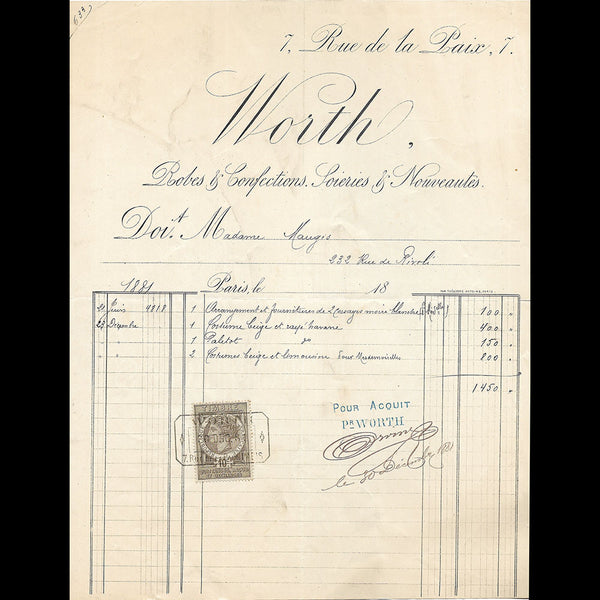 633
7, Rue de la Paix, 7.
Worth,
Robes & Confections. Soieries & Nouveautés.
Doit Madame Maugis
232 Rue de Rivoli
1881 Paris, le 18
21 Juin 4818 1 Arrangement et fournitures de 2 corsages moire 100 "
23 Décembre 1 Costume beige et rayé havane 400 "
1 Paletot do 150 "
" 2 Costumes beige et limousine pour Mesdemoiselles 800 "
1450 "
POUR ACQUIT
Pr WORTH
le 30 Décembre 1881
TIMBRE
WORTH
10c